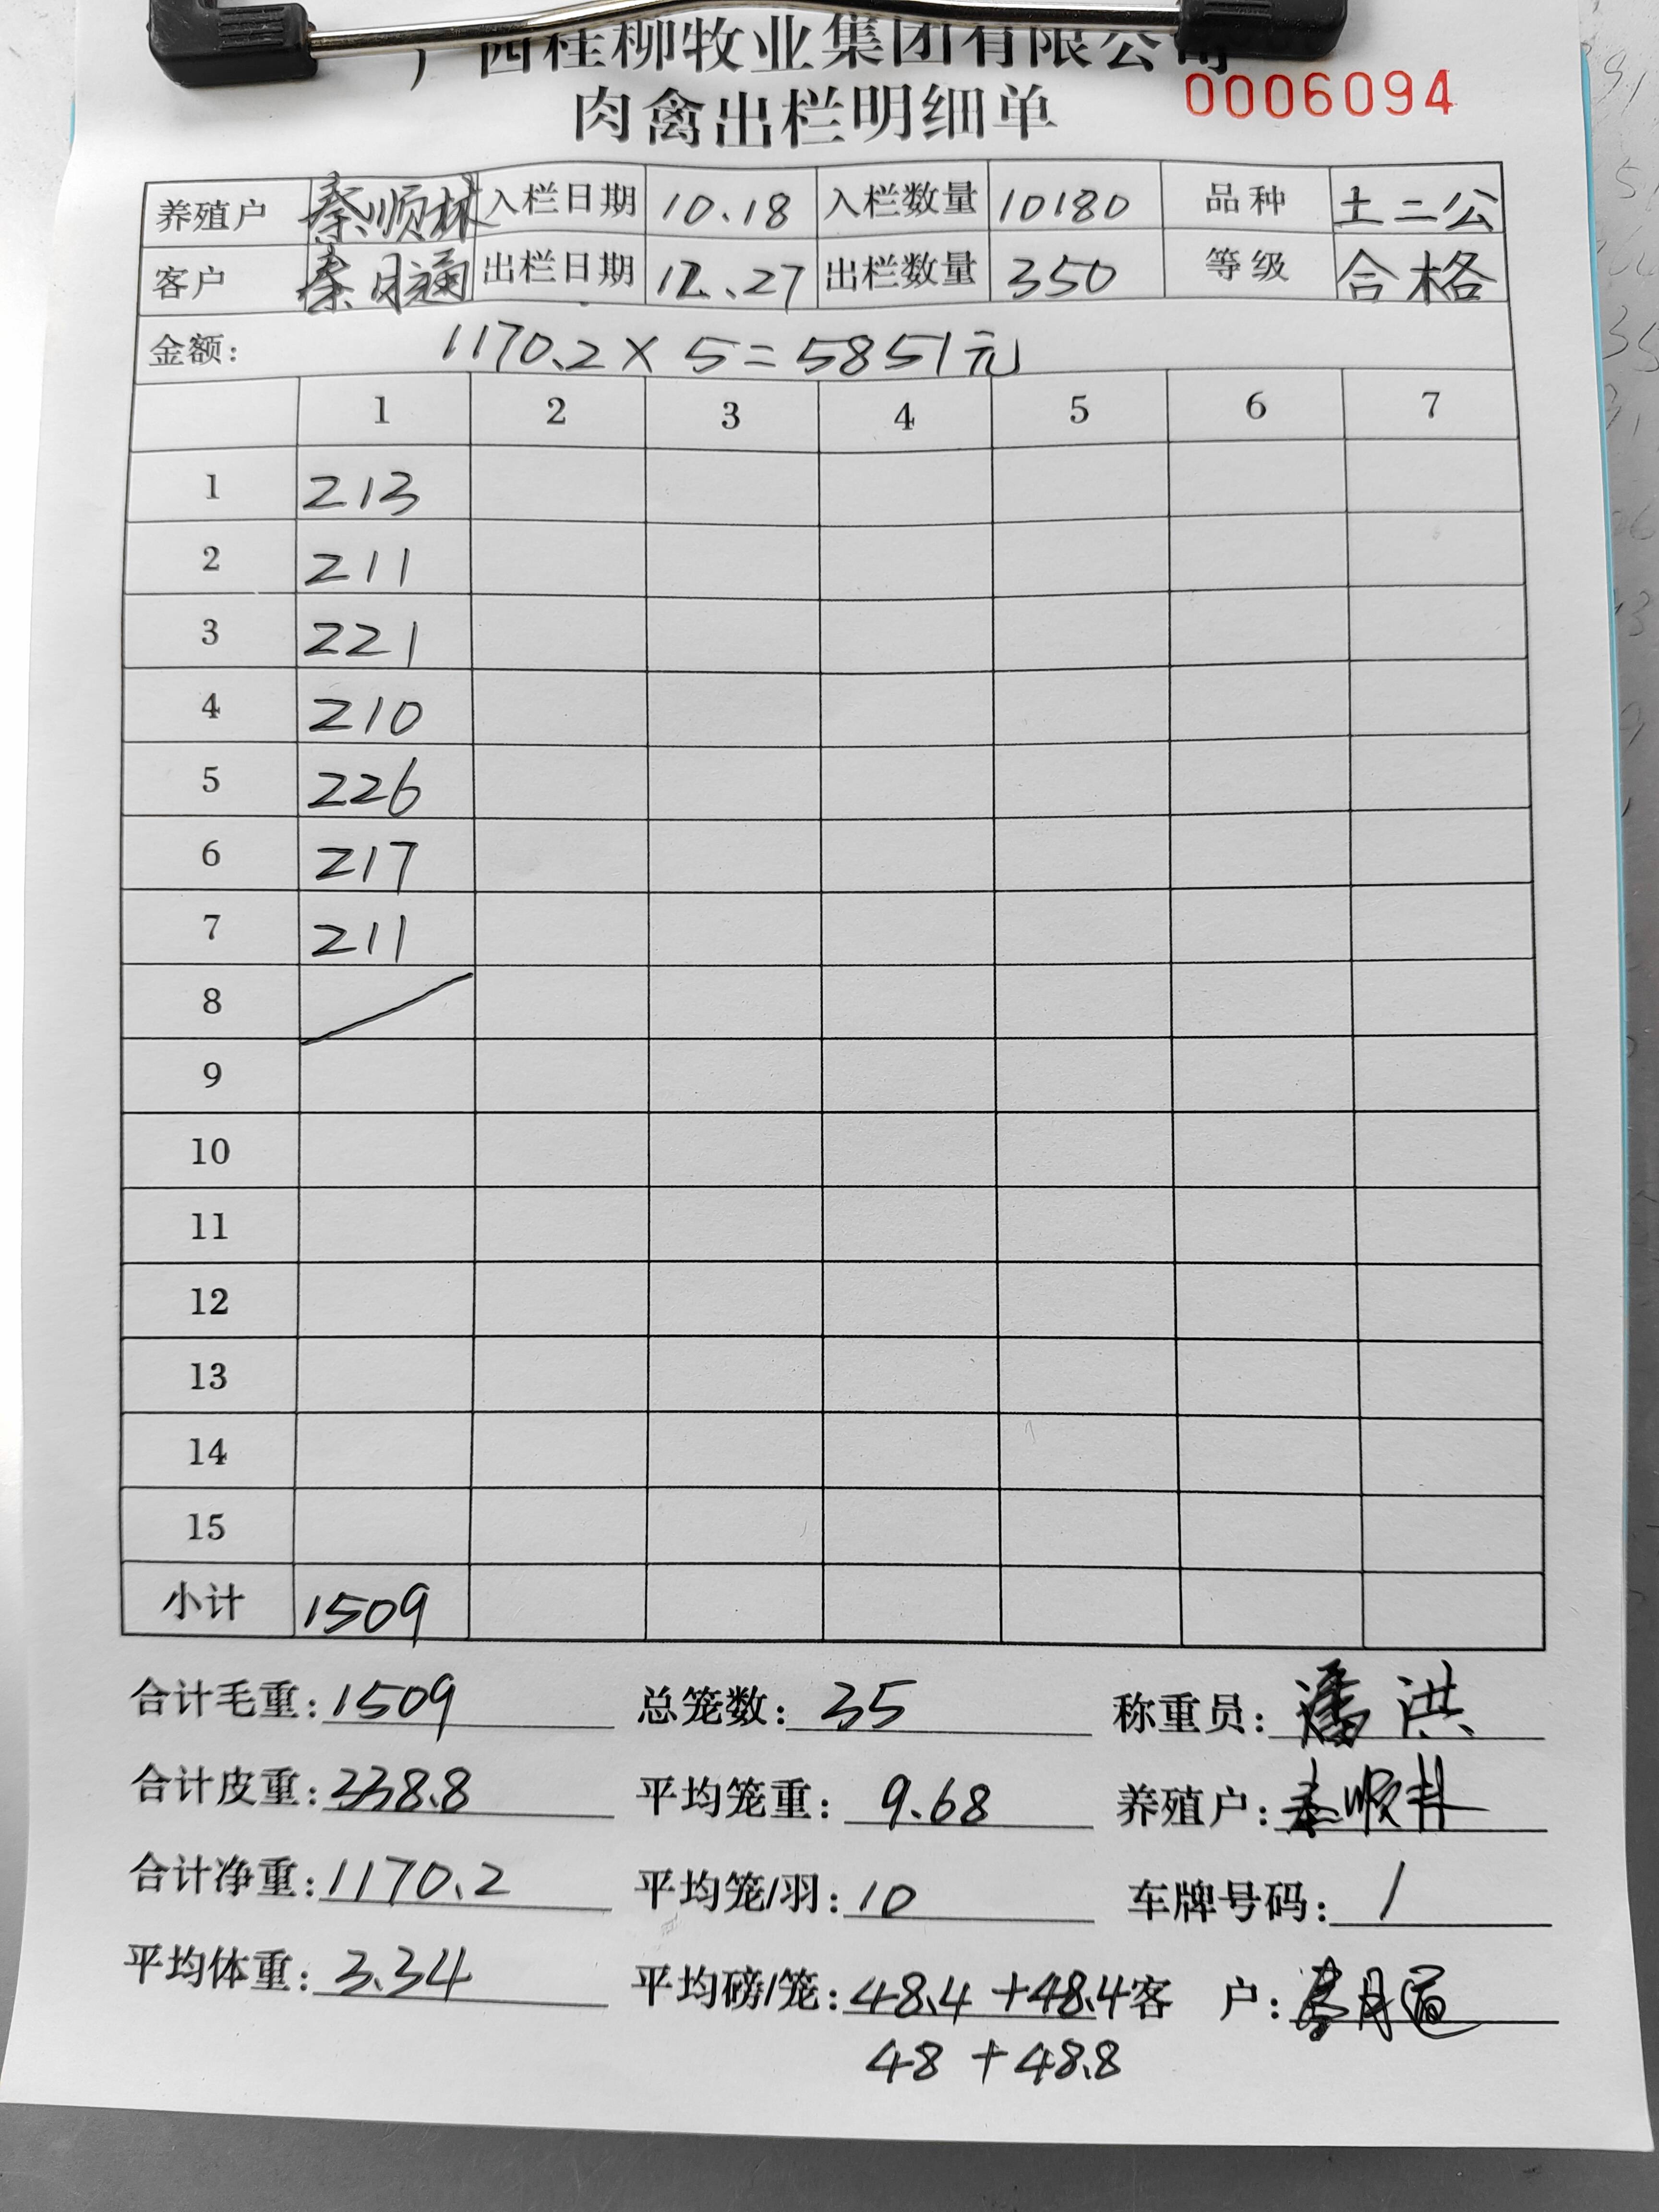 广西桂柳牧业集团有限公司
肉禽出栏明细单 0006094
养殖户 秦顺林 入栏日期 10.18 入栏数量 10180 品种 土二公
客户 秦月通 出栏日期 12.27 出栏数量 350 等级 合格
金额: 1170.2×5=5851元
1 2 3 4 5 6 7
1 213
2 211
3 221
4 210
5 226
6 217
7 211
8
9
10
11
12
13
14
15
小计 1509
合计毛重:1509 总笼数:35 称重员:潘洪
合计皮重:338.8 平均笼重:9.68 养殖户:秦顺林
合计净重:1170.2 平均笼/羽:10 车牌号码:/
平均体重:3.34 平均磅/笼:48.4+48.4 客户:秦月通
48+48.8